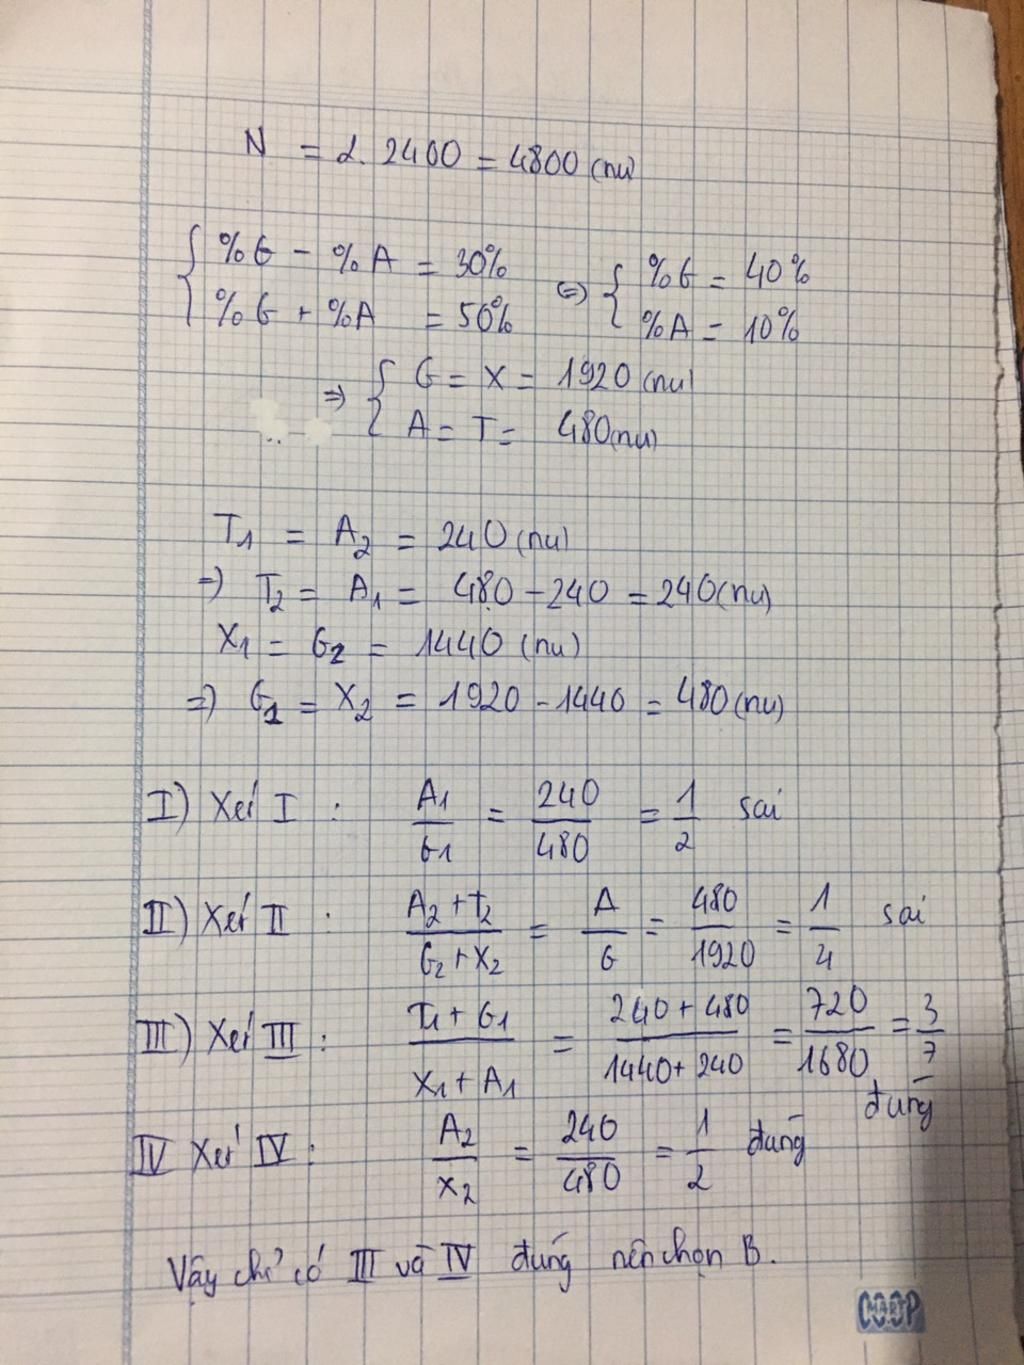 N = 2. 2400 = 4800 (nu)
{ %G - %A = 30%
%G + %A = 50% <=> { %G = 40%
%A = 10%
=> { G = X = 1920 (nu)
A = T = 480 (nu)
T1 = A2 = 240 (nu)
=> T2 = A1 = 480 - 240 = 240 (nu)
X1 = G2 = 1440 (nu)
=> G1 = X2 = 1920 - 1440 = 480 (nu)
I) Xét I : A1/G1 = 240/480 = 1/2 sai
II) Xét II : A2 + T2/G2 + X2 = A/G = 480/1920 = 1/4 sai
III) Xét III : T1 + G1/X1 + A1 = 240 + 480/1440 + 240 = 720/1680 = 3/7 đúng
IV Xét IV : A2/X2 = 240/480 = 1/2 đúng
Vậy chỉ có III và IV đúng nên chọn B.
CO.OP MART